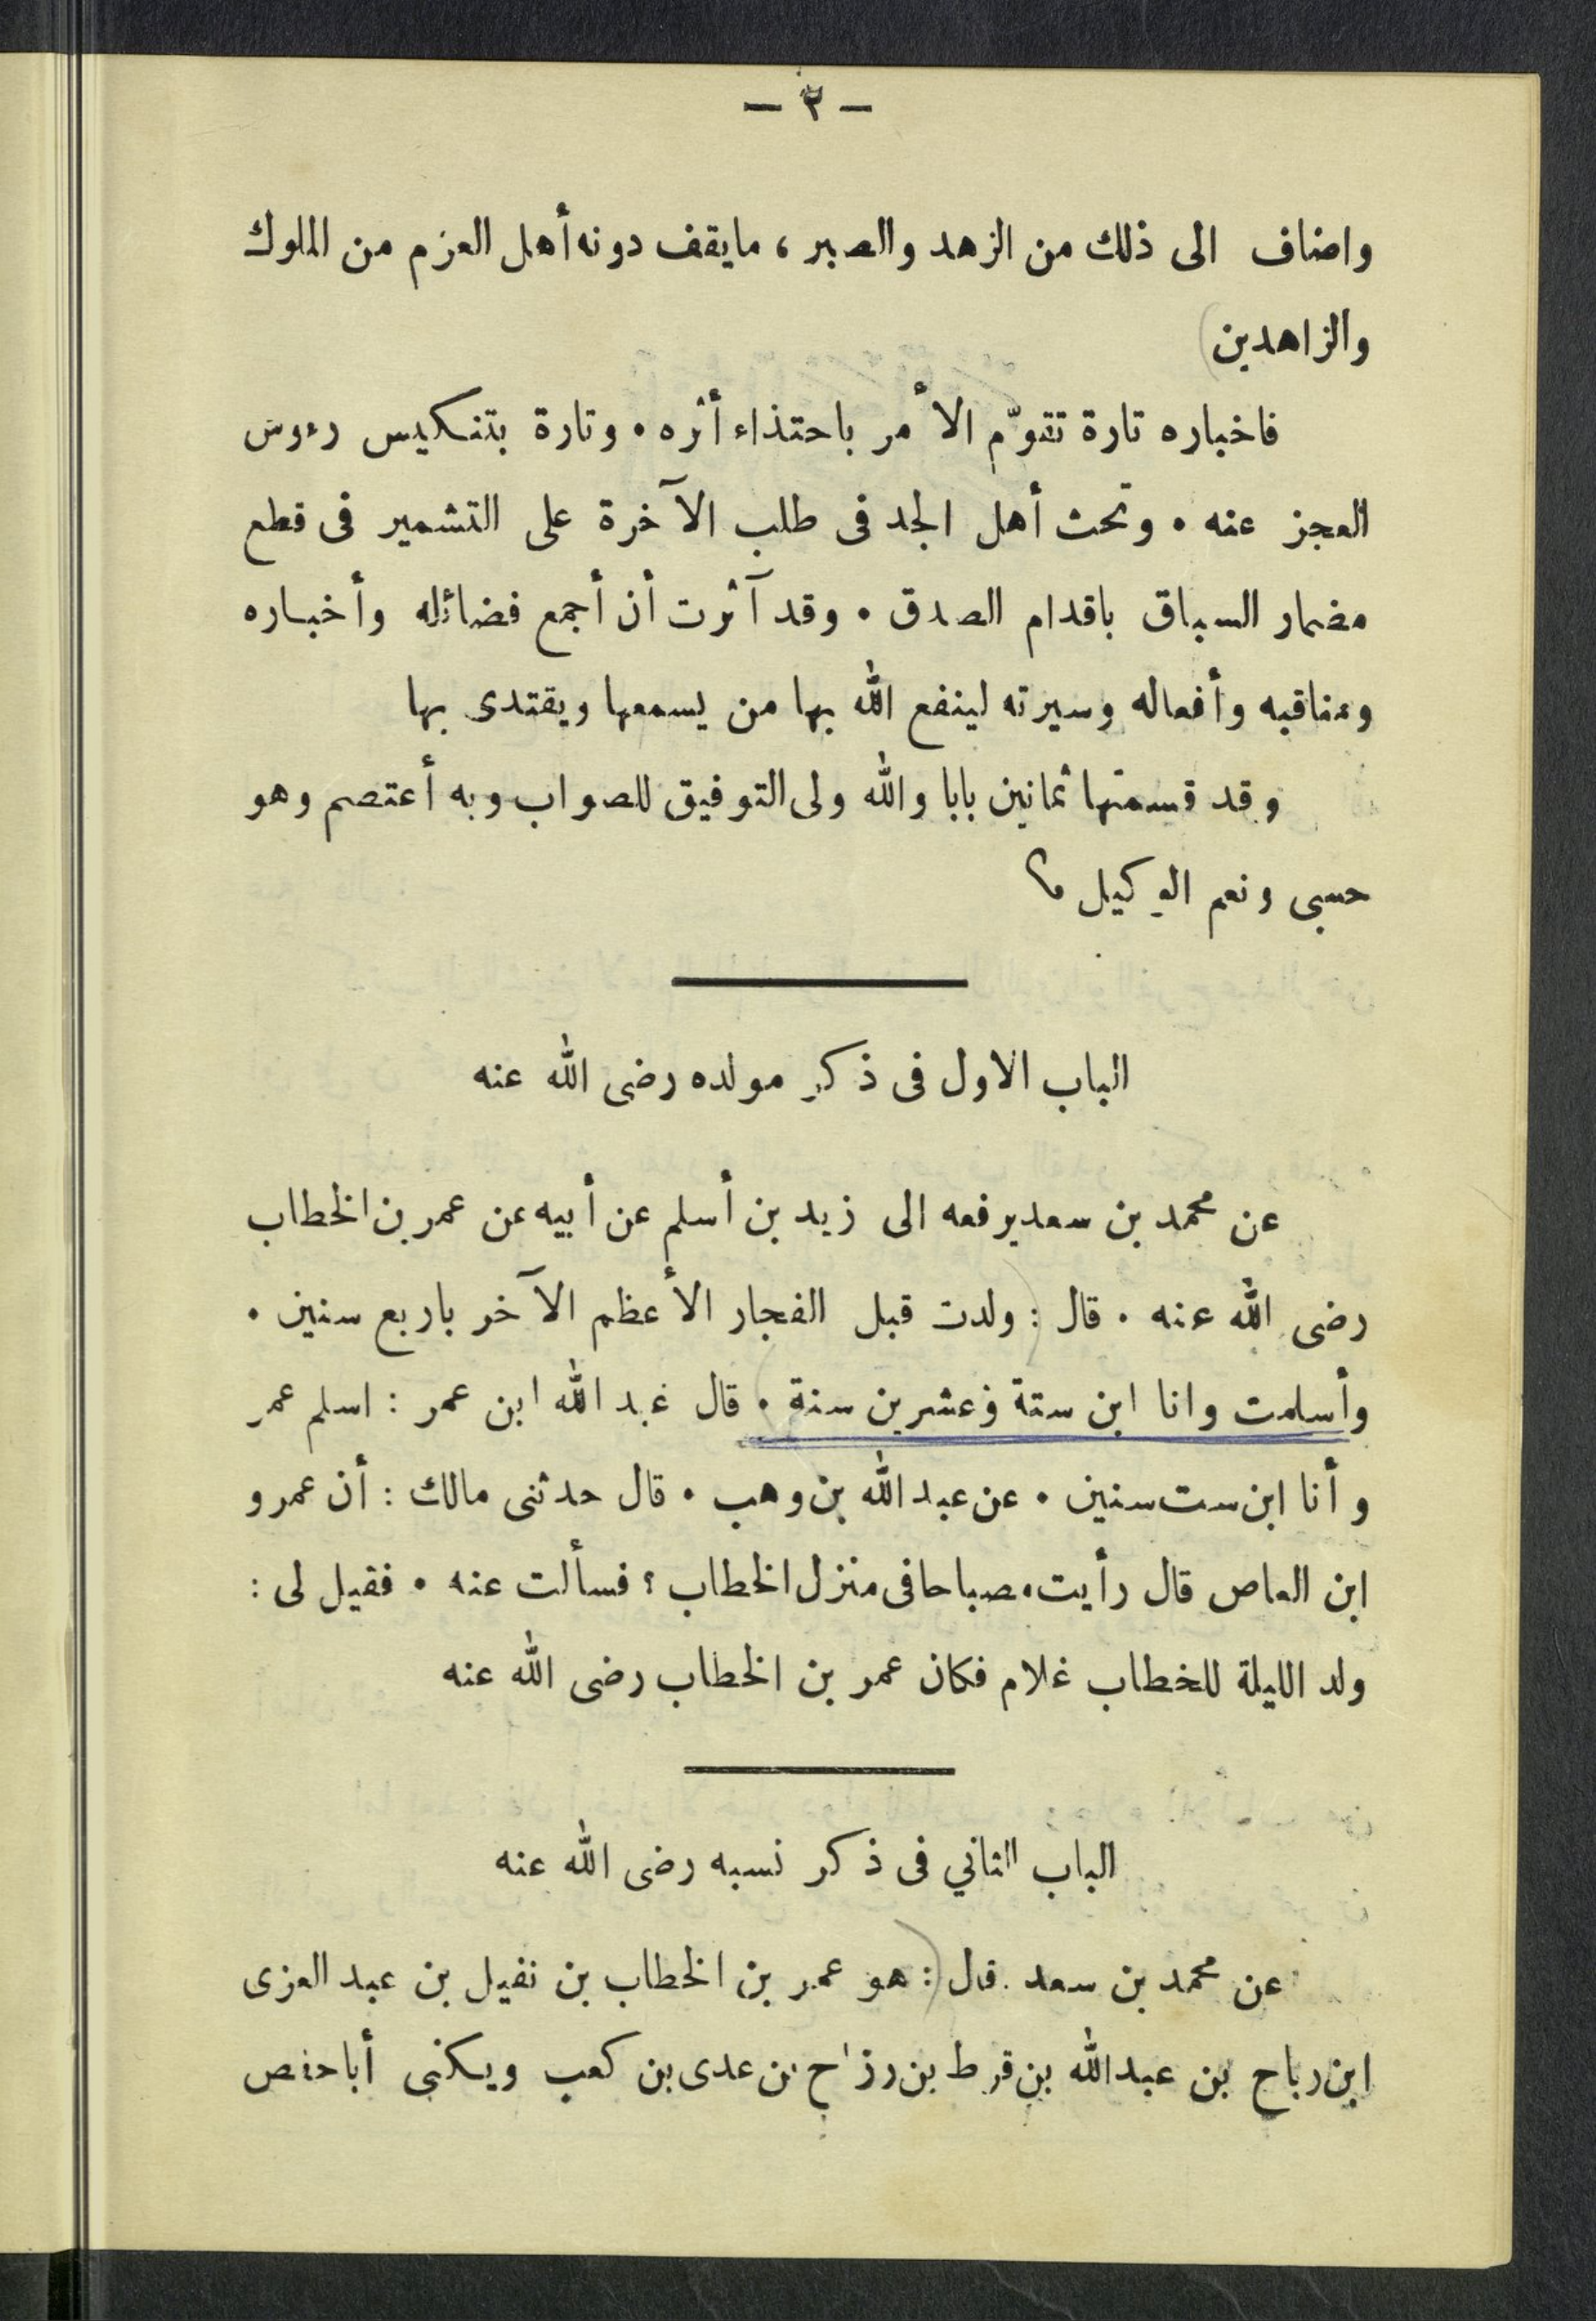 — ٢ —
واضاف الى ذلك من الزهد والصبر ، مايقف دونه أهل العزم من الملوك
والزاهدين)
فاخباره تارة تقوّم الأمر باحتذاء أثره . وتارة بتنكيس رءوس
العجز عنه . وتحث أهل الجد فى طلب الآخرة على التشمير فى قطع
مضمار السباق باقدام الصدق . وقد آثرت أن أجمع فضائله وأخباره
ومناقبه وأفعاله وسيرته لينفع الله بها من يسمعها ويقتدى بها
وقد قسمتها ثمانين بابا والله ولى التوفيق للصواب وبه أعتصم وهو
حسبى ونعم الوكيل
الباب الاول فى ذكر مولده رضى الله عنه
عن محمد بن سعد يرفعه الى زيد بن أسلم عن أبيه عن عمر بن الخطاب
رضى الله عنه . قال : (ولدت قبل الفجار الأعظم الآخر باربع سنين .
وأسلمت وانا ابن ستة وعشرين سنة .) قال عبد الله ابن عمر : اسلم عمر
وأنا ابن ست سنين . عن عبد الله بن وهب . قال حدثنى مالك : أن عمرو
ابن العاص قال رأيت مصباحا فى منزل الخطاب ؟ فسألت عنه . فقيل لى :
ولد الليلة للخطاب غلام فكان عمر بن الخطاب رضى الله عنه
الباب الثاني فى ذكر نسبه رضى الله عنه
عن محمد بن سعد . قال : (هو عمر بن الخطاب بن نفيل بن عبد العزى
ابن رباح بن عبد الله بن قرط بن رزاح بن عدى بن كعب ويكنى أبا حفص